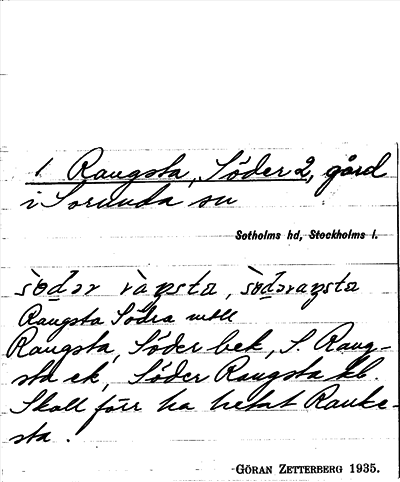 1. Rangsta, Söder 2, gård
i Sorunda sn
Sotholms hd, Stockholms l.
sö̀dər ràŋsta, sö̀dəraŋsta
Rangsta Södra
Rangsta, Söder bek, S. Rang-
sta ek, Söder Rangsta kb.
Skall förr ha hetat Ranke-
sta.
GÖRAN ZETTERBERG 1935.